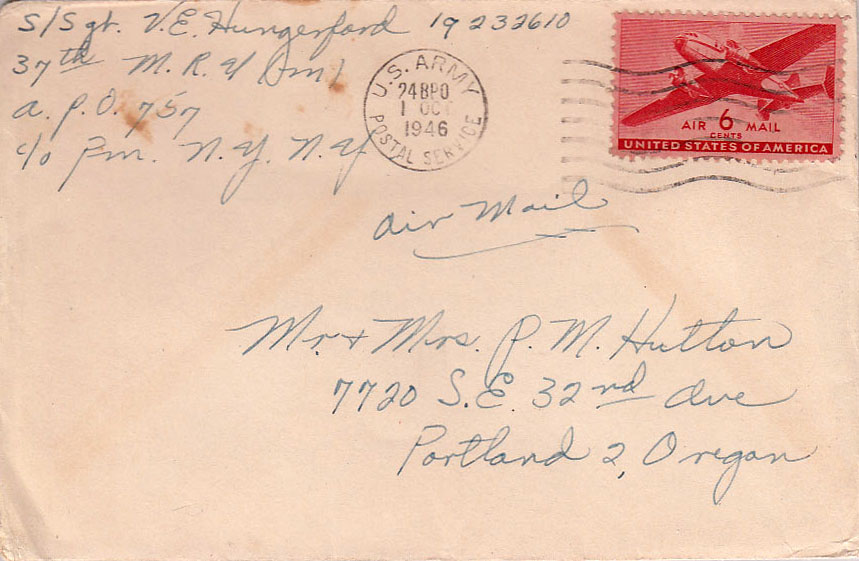 S/Sgt. V.E. Hungerford 19232610
37th M.R.U (m)
a.P.O. 757
c/o Pm. N.Y. N.Y
U.S. ARMY
24BPO
1 OCT
1946
POSTAL SERVICE
AIR 6 MAIL
CENTS
UNITED STATES OF AMERICA
Air Mail
Mr. + Mrs. P. M. Hutton
7720 S.E. 32nd Ave
Portland 2, Oregon